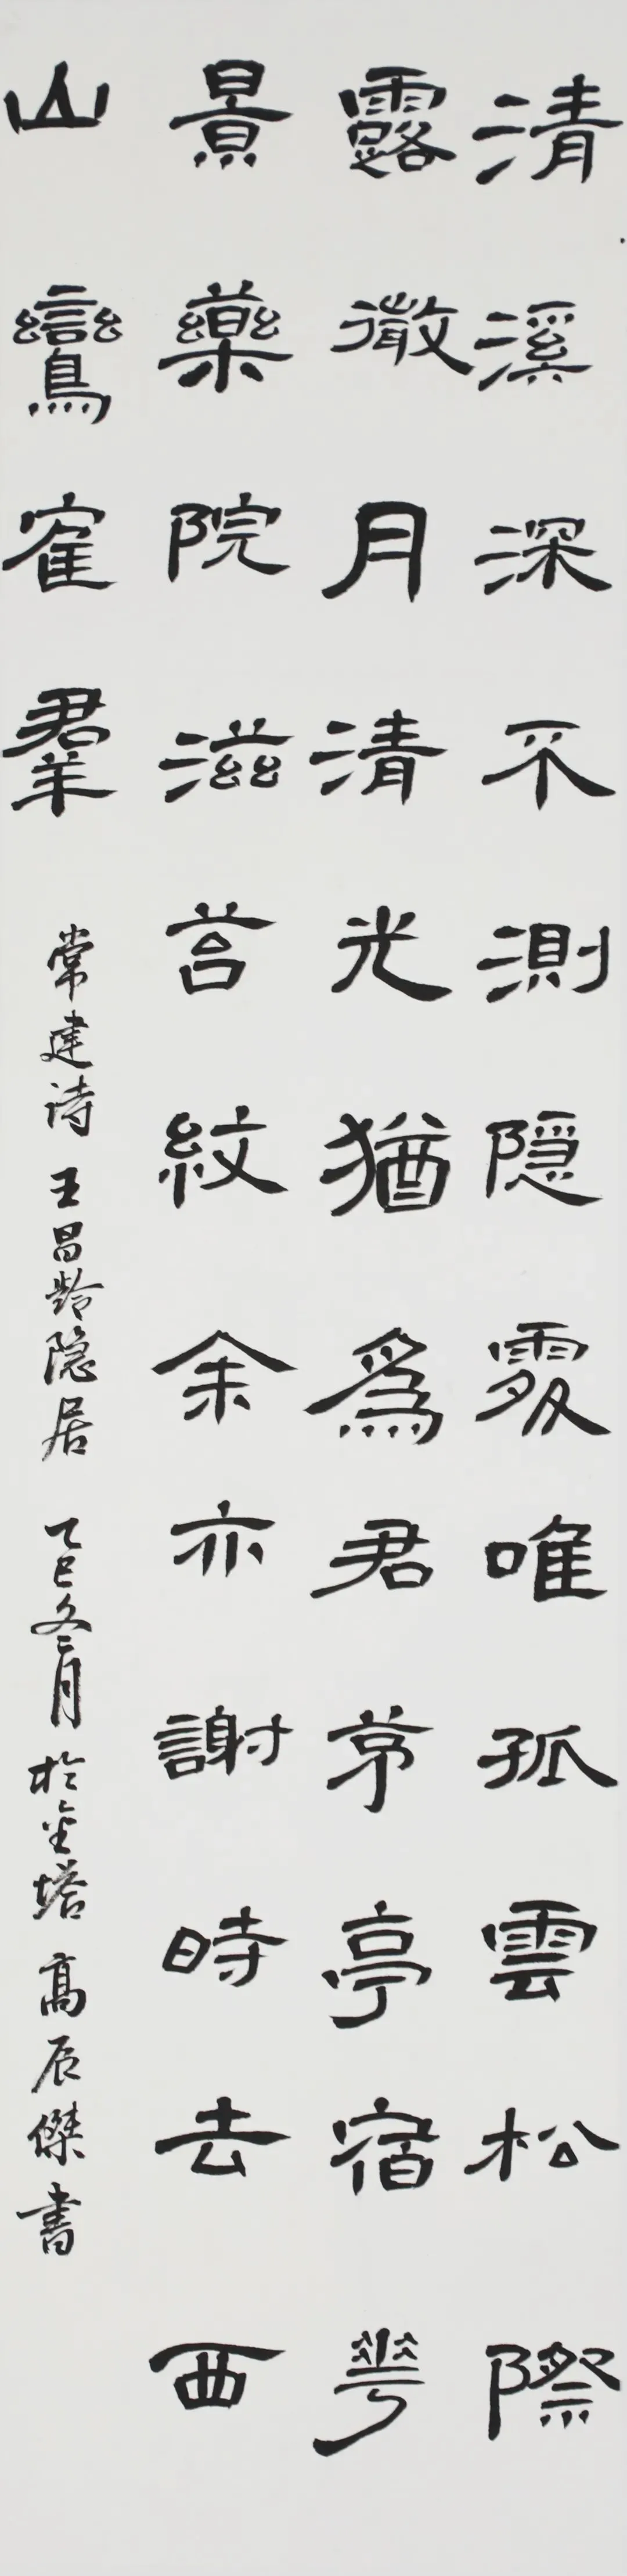 清溪深不測隐處唯孤雲松際
露微月清光猶爲君茅亭宿華
景藥院滋苔紋余亦謝時去西
山鸞寉羣
常建诗 王昌龄隐居 乙巳冬月 於金塔 高辰傑書